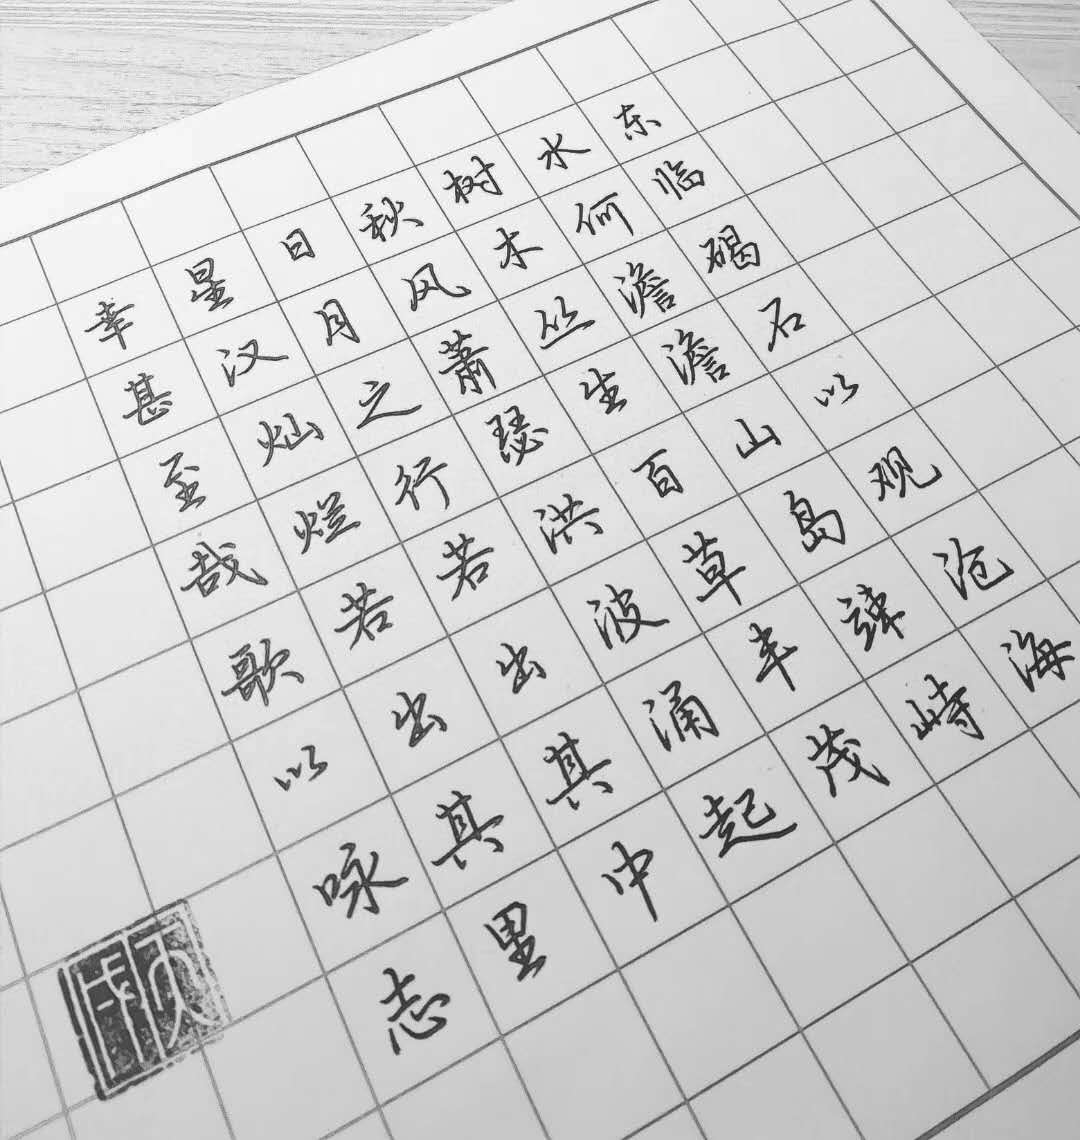 东临碣石以观沧海
水何澹澹山岛竦峙
树木丛生百草丰茂
秋风萧瑟洪波涌起
日月之行若出其中
星汉灿烂若出其里
幸甚至哉歌以咏志